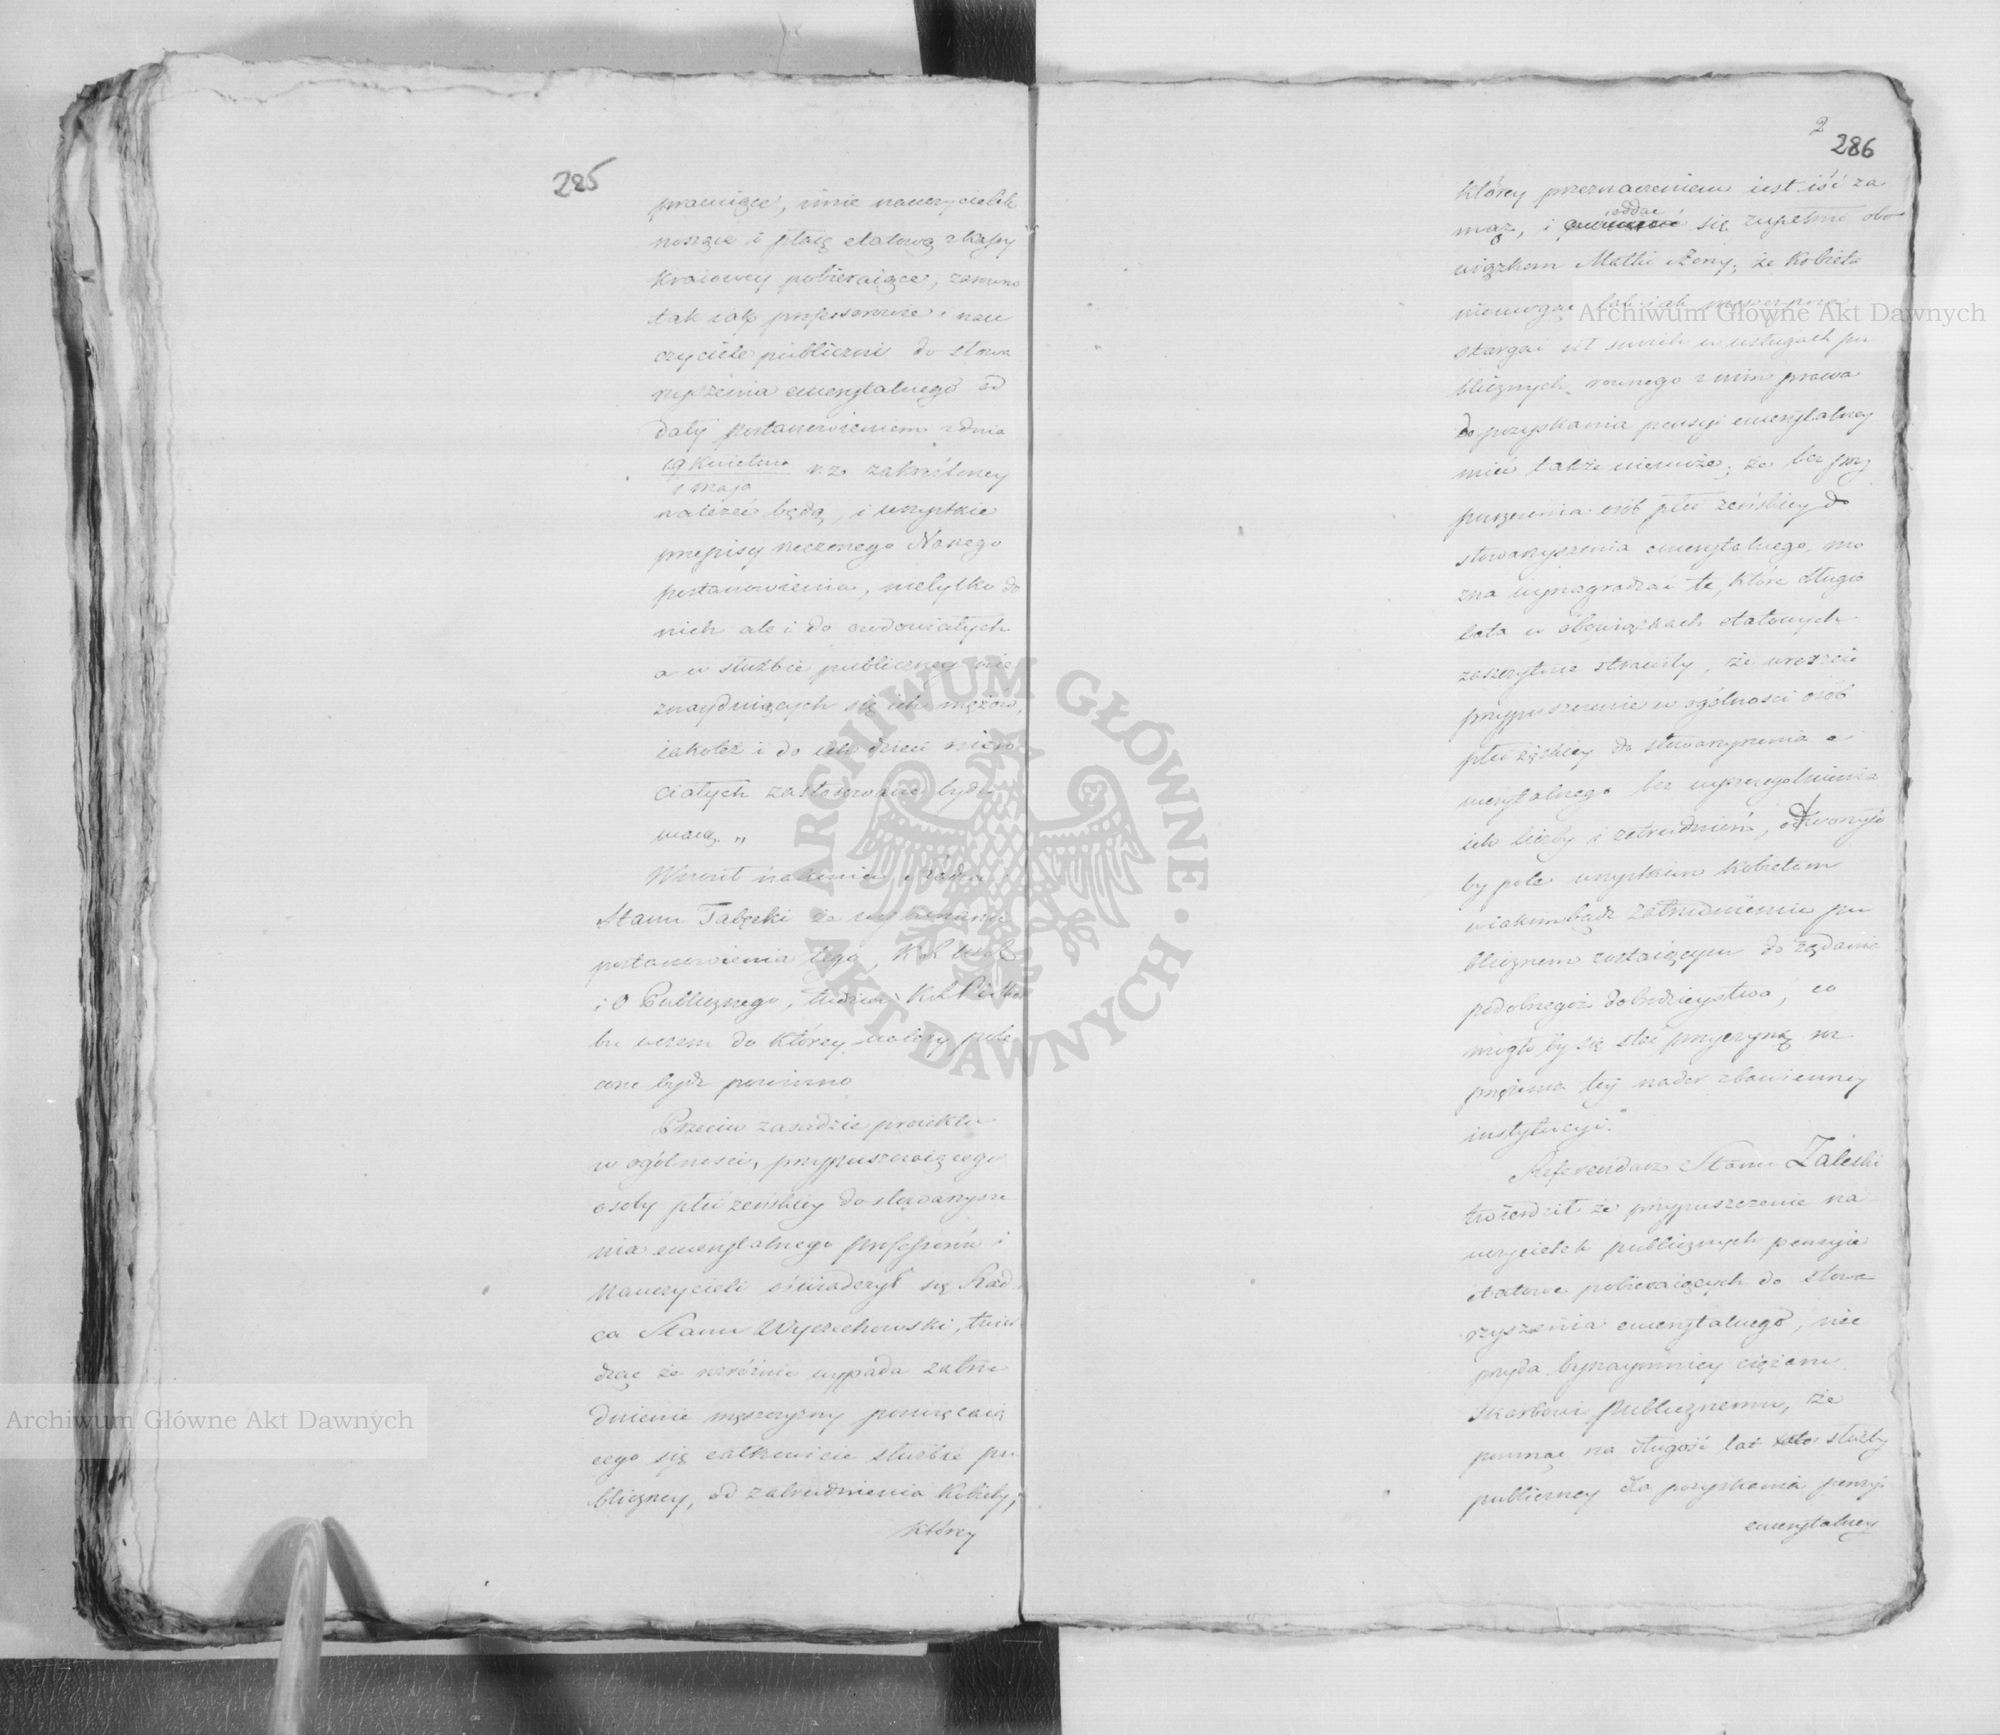 285
pracuiące, imie nauczycielek
noszące i płacę etatową z kassy
Kraiowey pobieraiące, zarówno
tak iak professorowie i nau
czyciele publiczni do stowa
rzyszenia emerytalnego od
daty postanowieniem z dnia
19 Kwietnia / 1 Maja r.z. zakreśloney
należeć będą, i wszystkie
przepisy rzeczonego Nowego
postanowienia, nietylko do
nich ale i do owdowiałych
a w służbie publiczney nie
znayduiących się ich mężów,
iakoteż i do ich dzieci osiero
ciałych zastosowane bydź
maią. „
Wniosł nakoniec Radca
Stanu Tabęcki że wykonanie
postanowienia tego, K. R. W. R.
i O Publicznego, tudzież K. R. P. i Skar
bu wczem do którey należy pole
cone bydź powinno
Przeciw zasadzie proiektu
w ogólności, przypuszczaiącego
osoby płci żeńskiey do stowarzysze
nia emerytalnego professorów i
Nauczycieli oświadczył się Rad
ca Stanu Wyczechowski, twier
dząc że rozróżnić wypada zatru
dnienie męszczyzny poświęcaią
cego się całkowicie służbie pu
bliczney, od zatrudnienia Kobiety,
którey
2
286
którey przeznaczeniem iest iść za
mąż, i oddać się zupełnie obo
wiązkom Matki Żony; że Kobieta
niemogąc tak iak męszczyzna
stargać sił swoich w usługach pu
blicznych, równego z nim prawa
do pozyskania pensyi emerytalney
mieć także niemoże; że bez przy
puszczenia osób płci żeńskiey do
stowarzyszenia emerytalnego, mo
żna wynagradzać te, które długie
lata w obowiązkach etatowych
zaszczytnie strawiły, że wreszcie
przypuszczenie w ogólności osób
płci żęńskiey do stowarzyszenia e
merytalnego bez wyszczególnienia
ich liczby i zatrudnień, otworzyło
by pole wszystkim kobietom
w iakimbądź zatrudnieniu pu
blicznem zostaiącym do żądania
podobnegoż dobrodzieystwa, co
mogłoby się stać przyczyną roz
przężenia tey nader zbawienney
instytucyi.
Referendarz Stanu Zaleski
twierdził że przypuszczenie na
uczycielek publicznych pensyie
etatowe pobieraiących do stowa
rzyszenia emerytalnego, nie
przyda bynaymniey ciężaru
Skarbowi Publicznemu, że
pomnąc na długość lat służby
publiczney dla pozyskania pensyi
emerytalney
Archiwum Główne Akt Dawnych
Archiwum Główne Akt Dawnych
ARCHIWUM GŁÓWNE AKT DAWNYCH